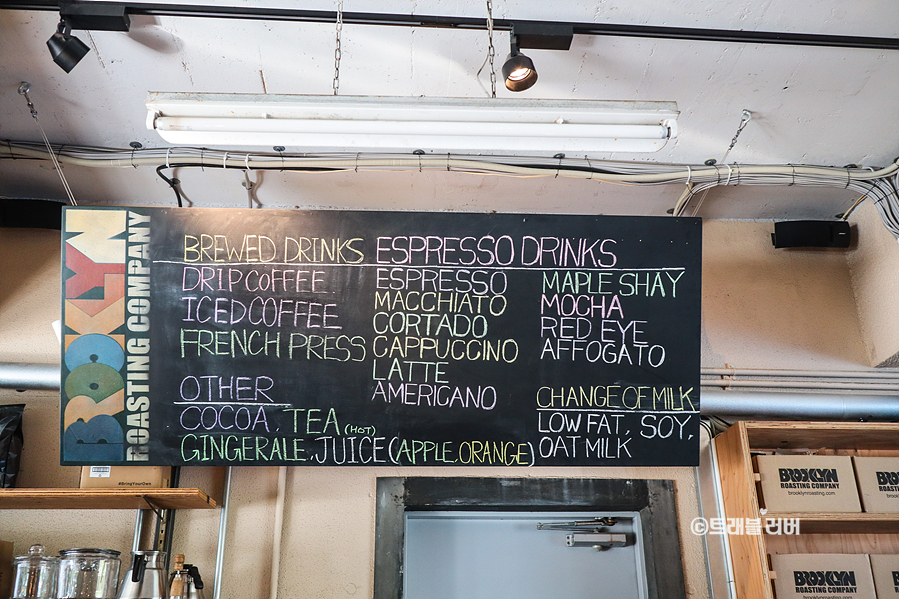 BROOKLYN
ROASTING COMPANY
BREWED DRINKS
DRIP COFFEE
ICED COFFEE
FRENCH PRESS
OTHER
COCOA, TEA (HOT)
GINGERALE, JUICE (APPLE, ORANGE)
ESPRESSO DRINKS
ESPRESSO
MACCHIATO
CORTADO
CAPPUCCINO
LATTE
AMERICANO
MAPLE SHAY
MOCHA
RED EYE
AFFOGATO
CHANGE OF MILK
LOW FAT, SOY,
OAT MILK
#BringYourOwn
BROOKLYN
ROASTING COMPANY
brooklynroasting.com
BROOKLYN
ROASTING COMPANY
brooklynroasting.com
©트래블러버